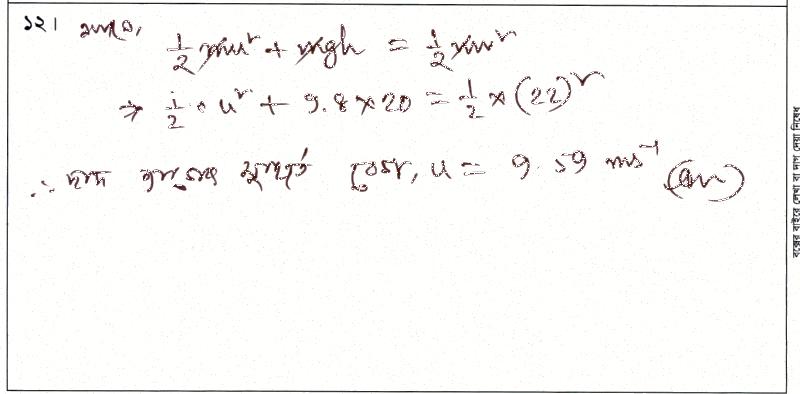 ১২। আমরা জানি,
½mu² + mgh = ½mv²
⇒ ½ · u² + 9.8 × 20 = ½ × (22)²
∴ বেগ, u = 9.59 ms⁻¹ (Ans)
বক্সের বাইরে লেখা বা দাগ দেয়া নিষেধ